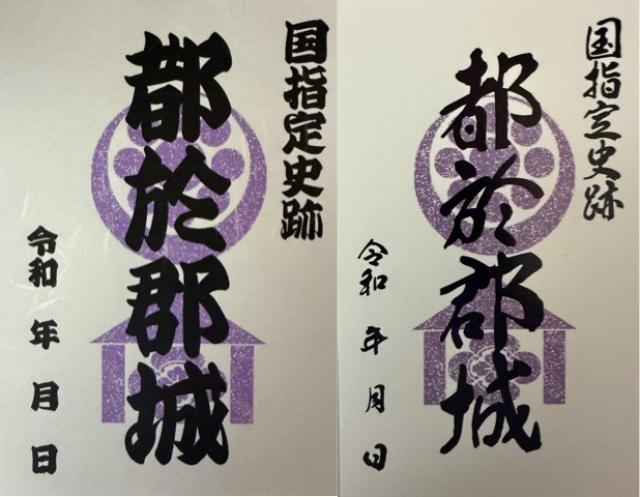 国指定史跡
都於郡城
令和 年 月 日
国指定史跡
都於郡城
令和 年 月 日